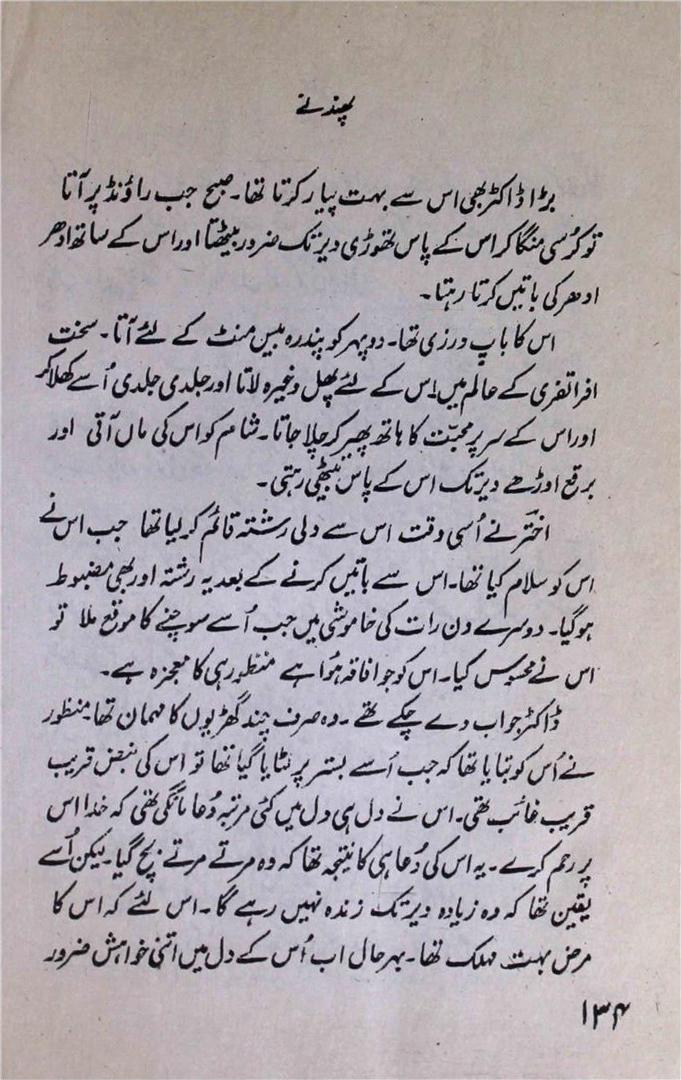 پھندنے
بڑا ڈاکٹر بھی اس سے بہت پیار کرتا تھا۔ صبح جب راؤنڈ پر آتا
تو کرُسی منگا کر اس کے پاس تھوڑی دیر تک ضرور بیٹھتا اور اس کے ساتھ ادھر
ادھر کی باتیں کرتا رہتا۔
اس کا باپ درزی تھا۔ دوپہر کو پندرہ بیس منٹ کے لئے آتا۔ سخت
افراتفری کے عالم میں اس کے لئے پھل وغیرہ لاتا اور جلدی جلدی اُسے کھلا کر
اور اس کے سر پر محبّت کا ہاتھ پھیر کر چلا جاتا۔ شام کو اس کی ماں آتی اور
برقع اوڑھے دیر تک اس کے پاس بیٹھی رہتی۔
اختر نے اُسی وقت اس سے دلی رشتہ قائم کر لیا تھا جب اس نے
اس کو سلام کیا تھا۔ اس سے باتیں کرنے کے بعد یہ رشتہ اور بھی مضبوط
ہو گیا۔ دوسرے دن رات کی خاموشی میں جب اُسے سوچنے کا موقع ملا تو
اس نے محسوس کیا۔ اس کو جو افاقہ ہُوا ہے منظور ہی کا معجزہ ہے۔
ڈاکٹر جواب دے چکے تھے۔ وہ صرف چند گھڑیوں کا مہمان تھا۔ منظور
نے اُس کو بتایا تھا کہ جب اُسے بستر پر لٹایا گیا تھا تو اس کی نبض قریب
قریب غائب تھی۔ اس نے دل ہی دل میں کئی مرتبہ دُعا مانگی تھی کہ خدا اس
پر رحم کرے۔ یہ اس کی دُعا ہی کا نتیجہ تھا کہ وہ مرتے مرتے بچ گیا۔ لیکن اُسے
یقین تھا کہ وہ زیادہ دیر تک زندہ نہیں رہے گا۔ اس لئے کہ اس کا
مرض بہت مہلک تھا۔ بہرحال اب اُس کے دل میں اتنی خواہش ضرور
۱۳۴